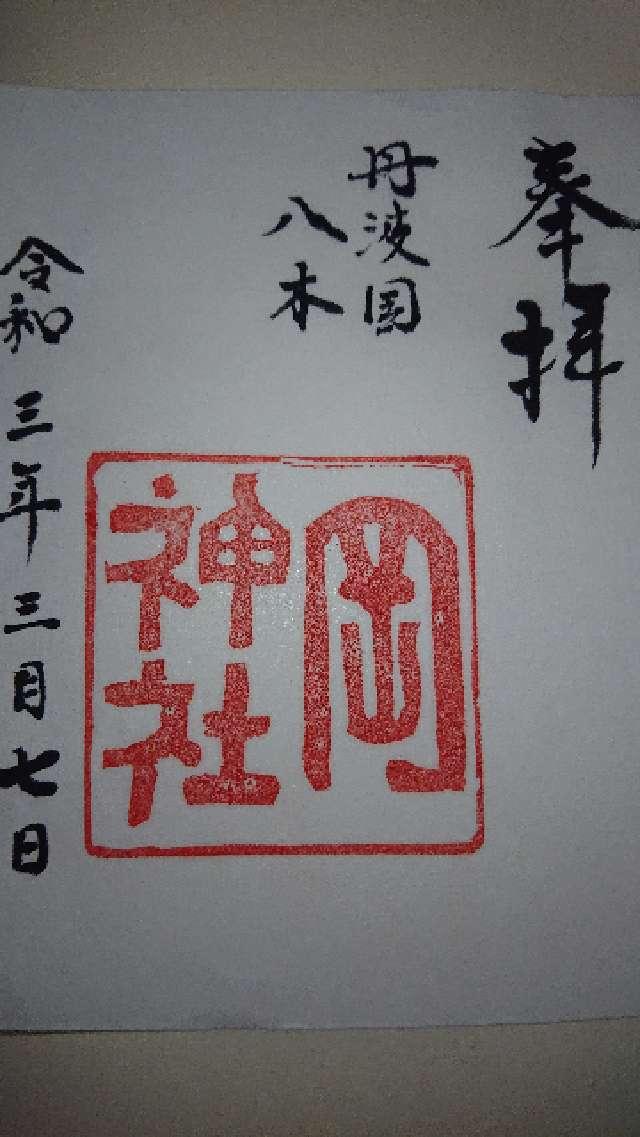 奉拝
丹波国
八木
岡
神社
令和三年三月七日